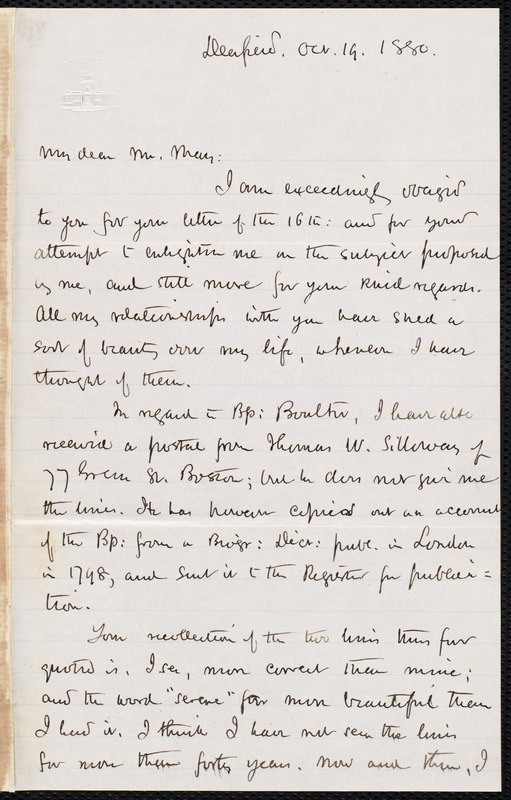 Deerfield. Oct. 19. 1880.
My dear Mr. May:
I am exceedingly obliged
to you for your letter of the 16th: and for your
attempt to enlighten me on the subject proposed
by me, and still more for your kind regards.
All my relationships with you have shed a
sort of beauty over my life, whenever I have
thought of them.
In regard to Bp: Boulter, I have also
received a postal from Thomas W. Silloway of
77 Green St. Boston; but he does not give me
the lines. He has however copied out an account
of the Bp: from a Biogr: Dict: publ. in London
in 1798, and sent it to the Register for publica=
tion.
Your recollection of the two lines thus far
quoted is, I see, more correct than mine;
and the word "serene" far more beautiful than
I had it. I think I have not seen the lines
for more than forty years. Now and then, I